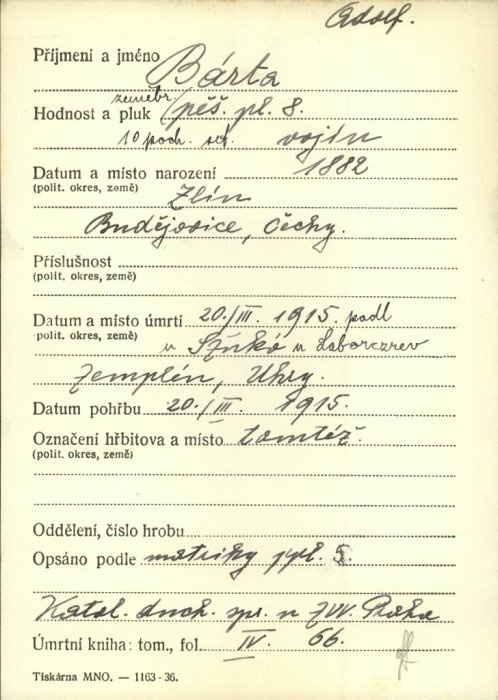 Adolf.
Příjmení a jméno Bárta
zeměbr.
Hodnost a pluk pěš. pl. 8.
10 poch. set. vojín
Datum a místo narození 1882
(polit. okres, země) Zlín
Budějovice, Čechy.
Příslušnost
(polit. okres, země)
Datum a místo úmrtí 20./III. 1915. padl
(polit. okres, země) u Szŕnkó u Laborczrev
Zemplén, Uhry.
Datum pohřbu 20./III. 1915.
Označení hřbitova a místo tamtéž.
(polit. okres, země)
Oddělení, číslo hrobu
Opsáno podle matriky ppl. 5.
Katol. duch. spr. u ZVV. Praha
Úmrtní kniha: tom., fol. IV. 66.
Tiskárna MNO. — 1163-36.